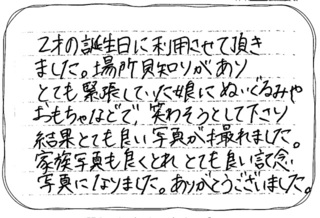 2才の誕生日に利用させて頂き
ました。場所見知りがあり
とても緊張していた娘にぬいぐるみや
おもちゃなどで、笑わそうとして下さり
結果とても良い写真が撮れました。
家族写真も良くとれ とても良い記念
写真になりました。ありがとうございました。